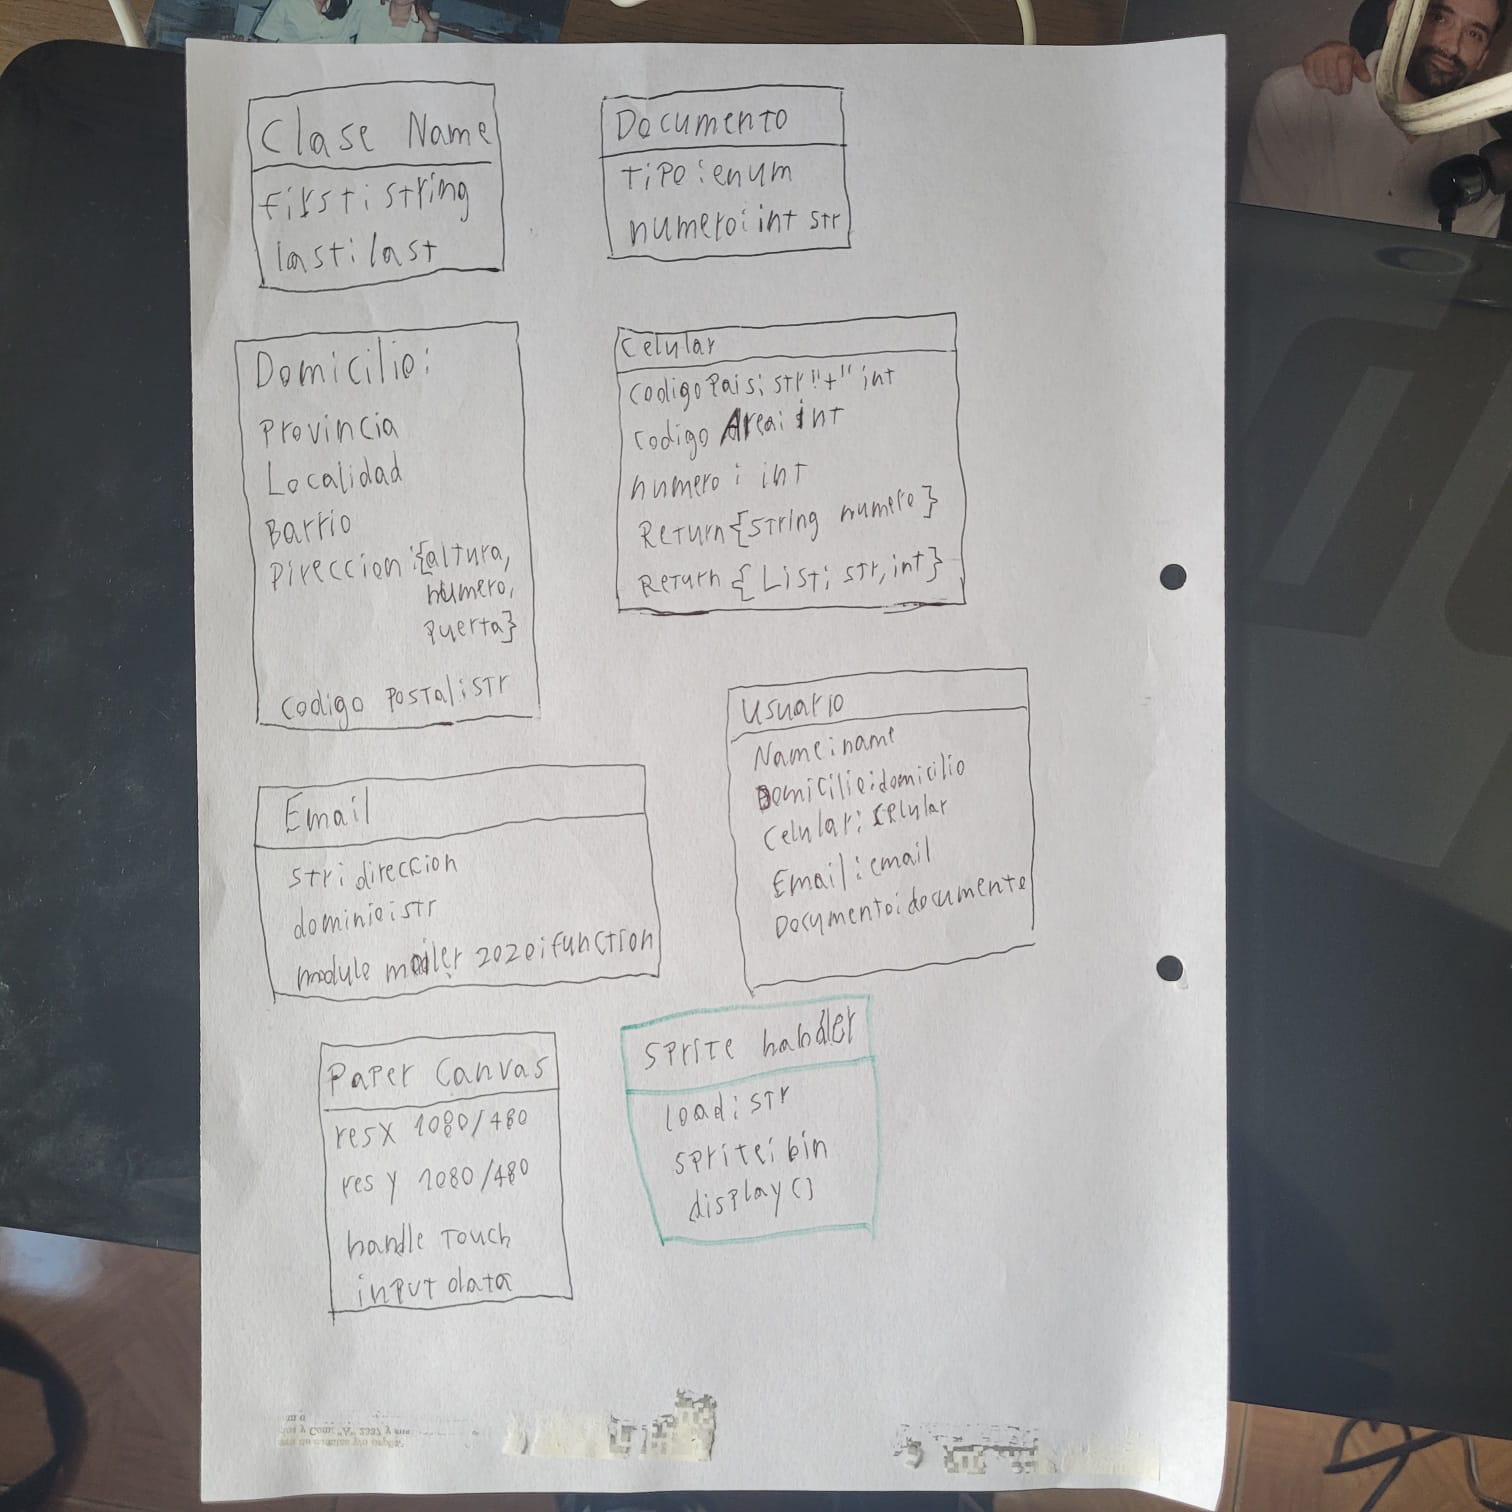 Clase Name
first: string
last: last
Documento
tipo: enum
numero: int str
Domicilio:
Provincia
Localidad
Barrio
Direccion:{altura,
numero,
puerta}
codigo postal: str
Celular
codigo Pais: str "+" int
codigo Area: int
numero: int
Return {string numero}
Return { List: str, int}
Usuario
Name: name
Domicilio: domicilio
Celular: celular
Email: email
Documento: documento
Email
str: direccion
dominio: str
module mailer 2020: function
Paper Canvas
res X 1080/480
res y 1080/480
handle Touch
input data
Sprite handler
load: str
sprite: bin
display()